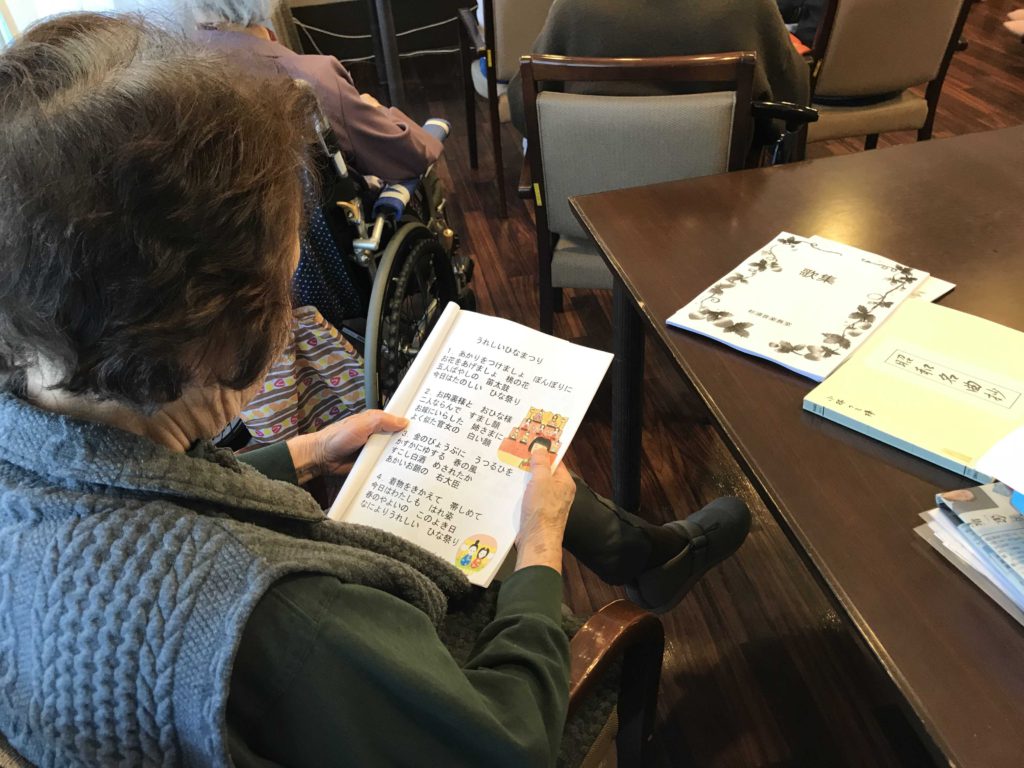 うれしいひなまつり
1. あかりをつけましょ　ぼんぼりに
お花をあげましょ　桃の花
五人ばやしの　笛太鼓
今日はたのしい　ひな祭り
2. お内裏様と　おひな様
二人ならんで　すまし顔
お嫁にいらした　姉さまに
よく似た官女の　白い顔
3. 金のびょうぶに　うつるひを
かすかにゆする　春の風
すこし白酒　めされたか
あかいお顔の　右大臣
4. 着物をきかえて　帯しめて
今日はわたしも　はれ姿
春のやよいの　このよき日
なによりうれしい　ひな祭り
歌集
昭和名曲抄